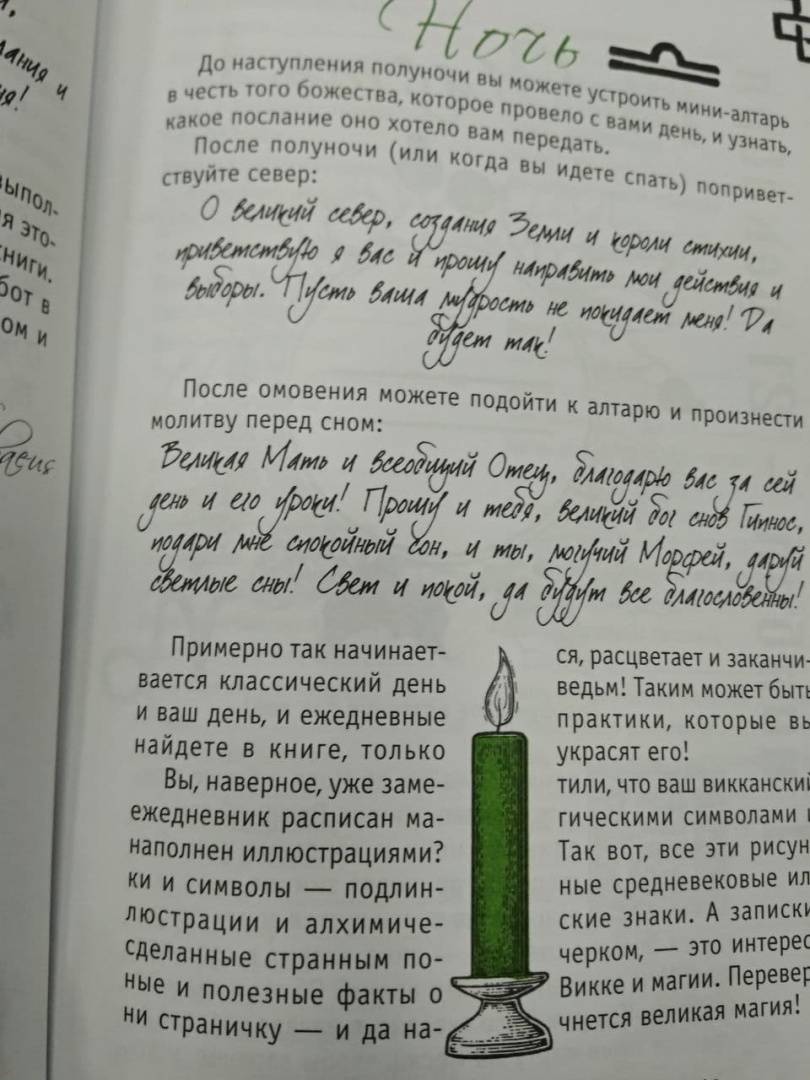 лания и
ия!
выпол-
я это-
книги.
бот в
ом и
Ночь
До наступления полуночи вы можете устроить мини-алтарь
в честь того божества, которое провело с вами день, и узнать,
какое послание оно хотело вам передать.
После полуночи (или когда вы идете спать) попривет-
ствуйте север:
О великий север, создания Земли и короли стихии,
приветствую я вас и прошу направить мои действия и
выборы. Пусть ваша мудрость не покидает меня! Да
будет так!
После омовения можете подойти к алтарю и произнести
молитву перед сном:
Великая Мать и всеобщий Отец, благодарю вас за сей
день и его уроки! Прошу и тебя, великий бог снов Гипнос,
подари мне спокойный сон, и ты, могучий Морфей, даруй
светлые сны! Свет и покой, да будут все благословенны!
Примерно так начинает- ся, расцветает и заканчи-
вается классический день ведьм! Таким может быть
и ваш день, и ежедневные практики, которые вы
найдете в книге, только украсят его!
Вы, наверное, уже заме- тили, что ваш викканский
ежедневник расписан ма- гическими символами и
наполнен иллюстрациями? Так вот, все эти рисун
ки и символы — подлин- ные средневековые ил
люстрации и алхимиче- ские знаки. А записки
сделанные странным по- черком, — это интерес
ные и полезные факты о Викке и магии. Перевер
ни страничку — и да на- чнется великая магия!